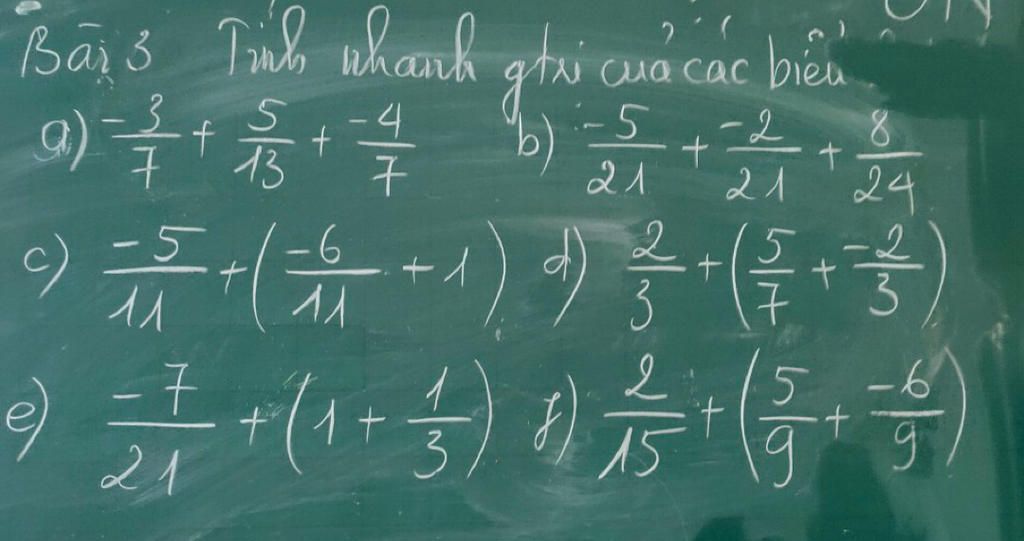 Bài 3 Tính nhanh gtrị của các biểu
a) -3/7 + 5/13 + -4/7 b) -5/21 + -2/21 + 8/24
c) -5/11 + (-6/11 + 1) d) 2/3 + (5/7 + -2/3)
e) -7/21 + (1 + 1/3) f) 2/15 + (5/9 + -6/9)